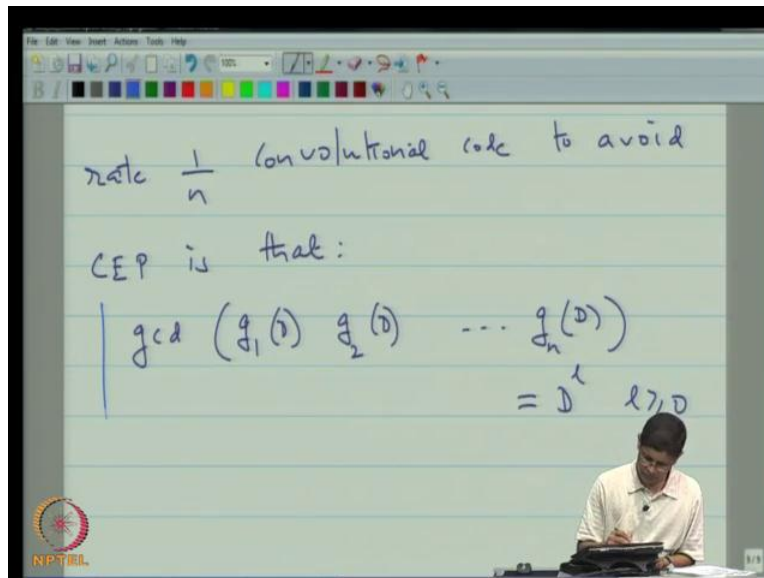 File Edit View Insert Actions Tools Help
100%
B I
rate 1/n convolutional code to avoid
CEP is that:
gcd (g₁(D) g₂(D) ... gₙ(D))
= D^l l ≥ 0
NPTEL
9/9